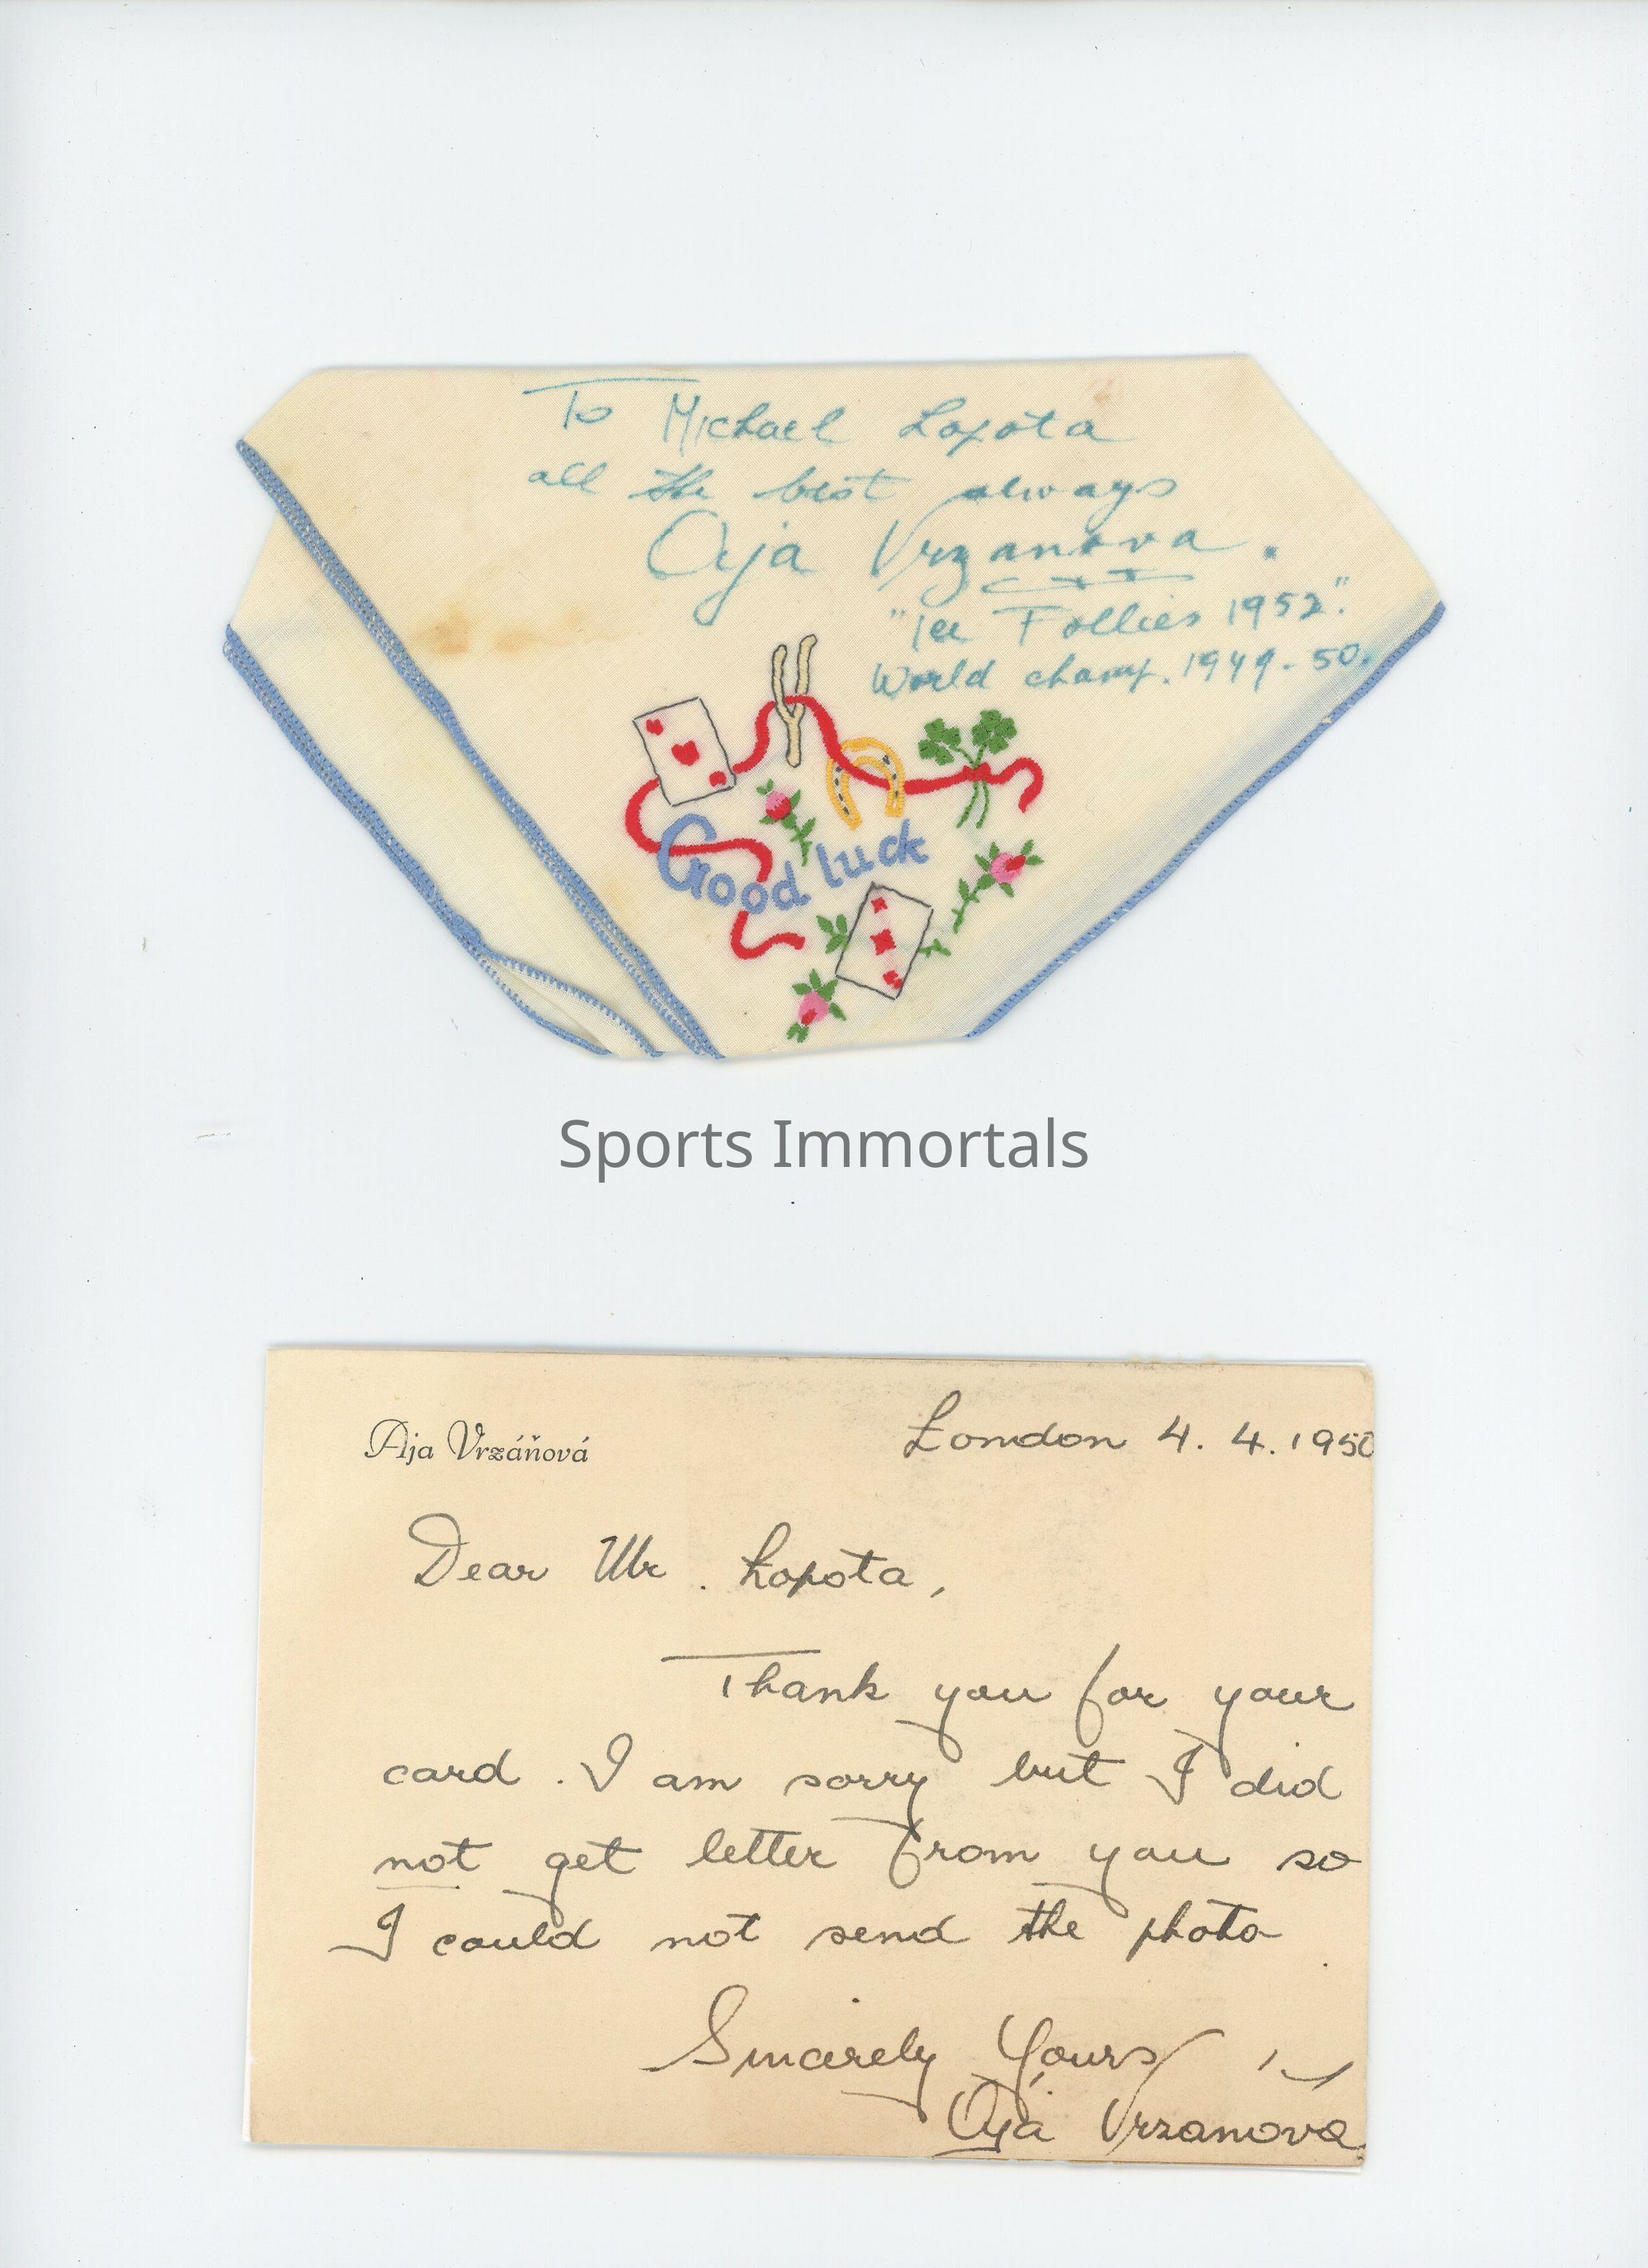 To Michael Lopota
all the best always
Aja Vrzanova.
"Ice Follies 1952".
World champ. 1949-50.
Good luck
Sports Immortals
Aja Vrzáňová
London 4. 4. 1950
Dear Mr. Lopota,
Thank you for your
card. I am sorry but I did
not get letter from you so
I could not send the photo.
Sincerely Yours
Aja Vrzanová